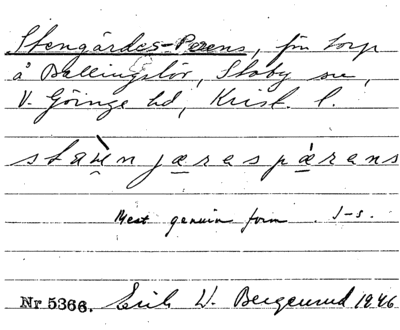 Stengårdes-Perens, f.n torp
å Ballingslöv, Stoby sn,
V. Göinge hd, Krist. l.
staⁱen jæraspærans
Mest genuin form. I-s.
Nr 5366. Erik W. Bergenrud 1946